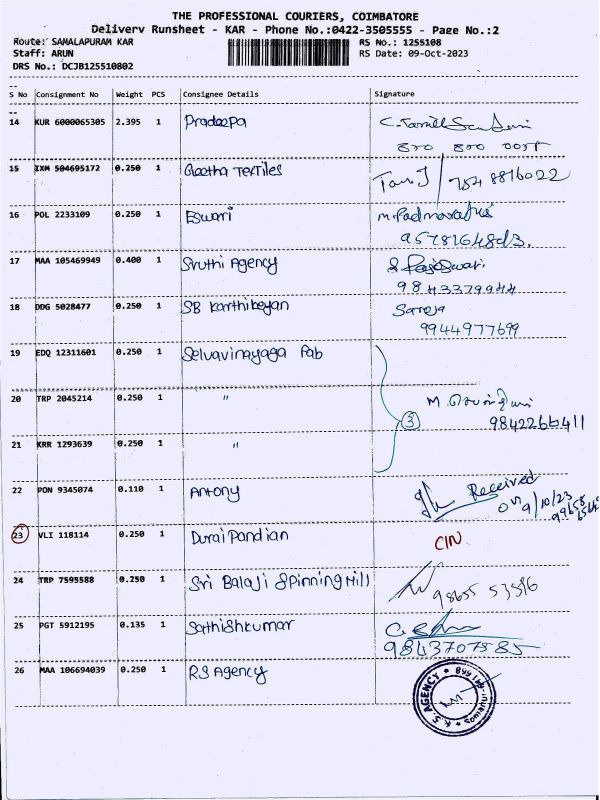 THE PROFESSIONAL COURIERS, COIMBATORE
Delivery Runsheet - KAR - Phone No.:0422-3505555 - Page No.:2
Route: SAMALAPURAM KAR RS No.: 1255108
Staff: ARUN RS Date: 09-Oct-2023
DRS No.: DCJB125510802
S No Consignment No Weight PCS Consignee Details Signature
14 KUR 6000065305 2.395 1 Pradeepa
800 800
15 IXM 504695172 0.250 1 Geetha Textiles 754 8816022
16 POL 2233109 0.250 1 Eswari
17 MAA 105469949 0.400 1 Sruthi Agency S. Rajeswari
9843379944
18 DDG 5028477 0.250 1 SB Karthikeyan Saroja
9944977699
19 EDQ 12311601 0.250 1 Selvavinayaga Fab
20 TRP 2045214 0.250 1 " M.
3 9842266411
21 KRR 1293639 0.250 1 "
22 PON 9345074 0.110 1 Antony Received
09/10/23
23 VLI 118114 0.250 1 Durai Pandian CIN
24 TRP 7595588 0.250 1 Sri Balaji Spinning Mill 98655 53596
25 PGT 5912195 0.135 1 Sathishkumar
9843707585
26 MAA 106694039 0.250 1 RS Agency
AGENCY